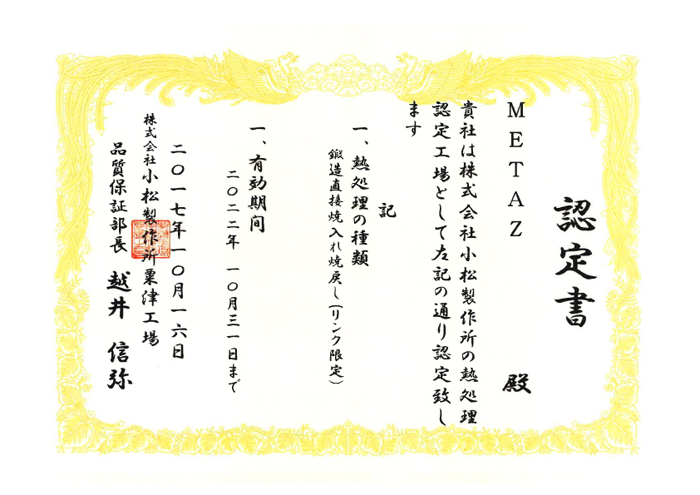 認定書
METAZ 殿
貴社は株式会社小松製作所の熱処理
認定工場として左記の通り認定致し
ます
記
一、熱処理の種類
鍛造直接焼入れ焼戻し(リンク限定)
一、有効期間
二〇二二年 一〇月三一日まで
二〇一七年一〇月一六日
株式会社小松製作所粟津工場
品質保証部長 越井 信弥